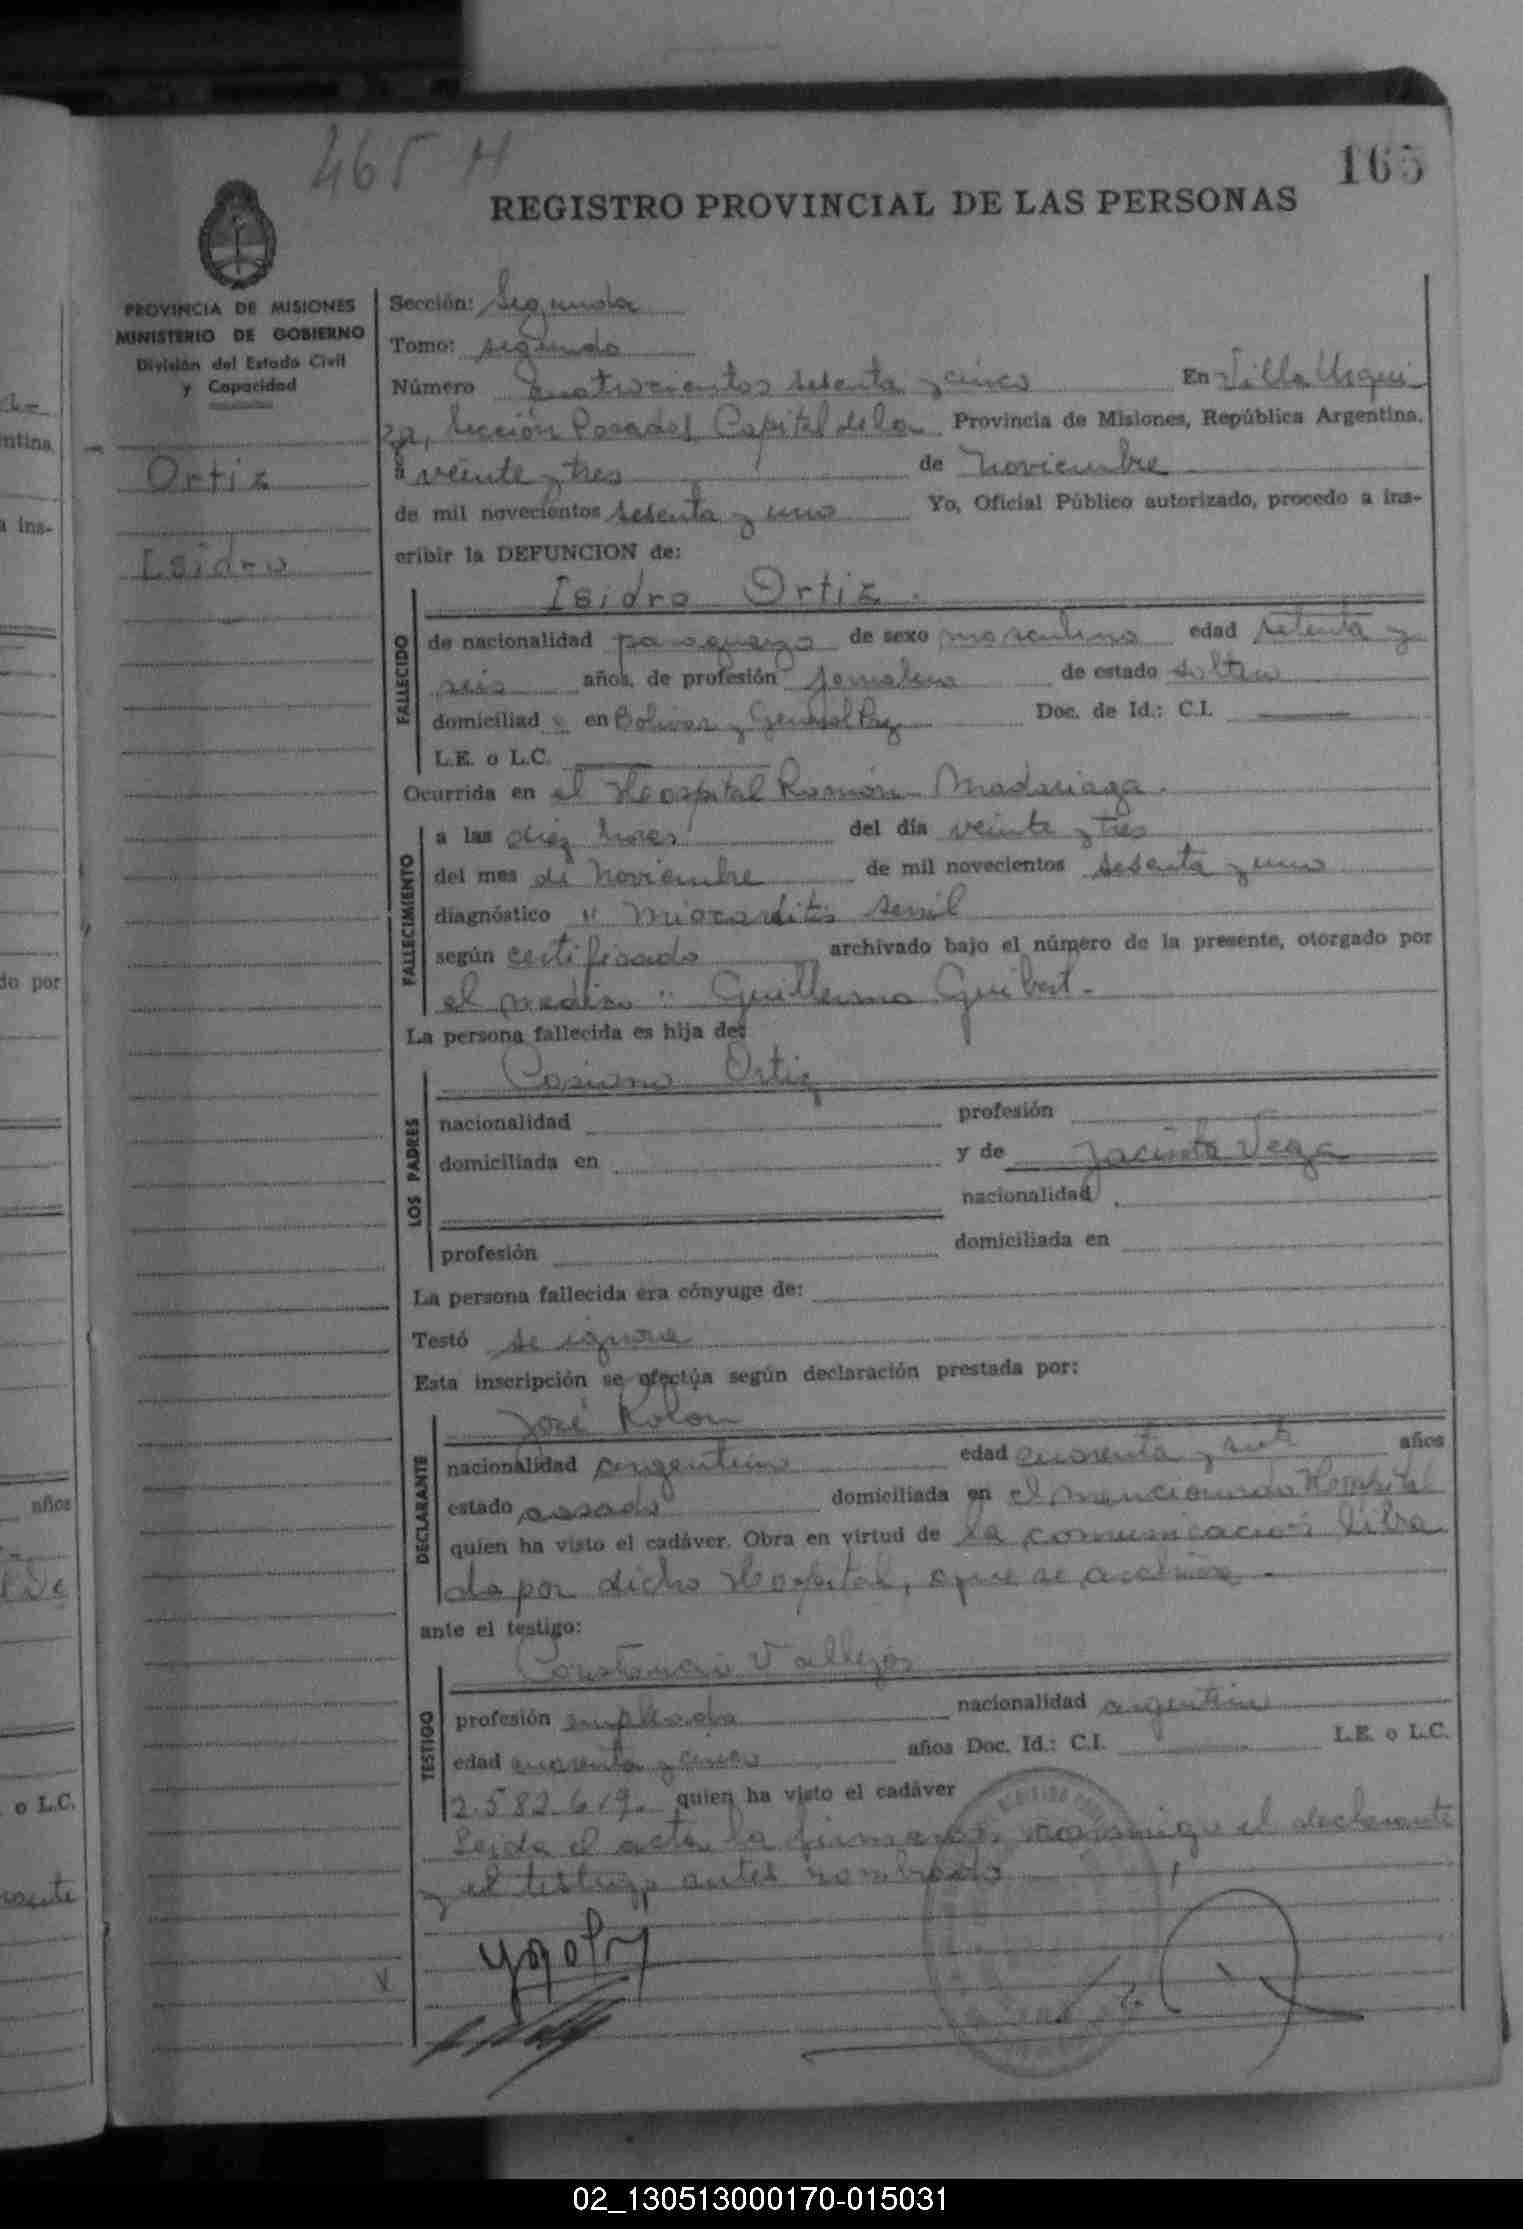 465 H
165
REGISTRO PROVINCIAL DE LAS PERSONAS
PROVINCIA DE MISIONES
MINISTERIO DE GOBIERNO
División del Estado Civil
y Capacidad
Ortiz
Isidro
Sección: Segunda
Tomo: segundo
Número cuatrocientos sesenta y cinco En Villa Urqui
za, Sección Posadas Capital de la Provincia de Misiones, República Argentina.
a veinte y tres de noviembre
de mil novecientos sesenta y uno Yo, Oficial Público autorizado, procedo a ins-
cribir la DEFUNCION de:
Isidro Ortiz.
FALLECIDO
de nacionalidad paraguayo de sexo masculino edad setenta y
seis años, de profesión jornalero de estado soltero
domiciliad o en Bolivar y General Paz Doc. de Id.: C.I.
L.E. o L.C.
Ocurrida en el Hospital Ramón Madariaga.
FALLECIMIENTO
a las diez horas del día veinte y tres
del mes de Noviembre de mil novecientos sesenta y uno
diagnóstico " miocarditis senil
según certificado archivado bajo el número de la presente, otorgado por
el medico " Guillermo Guibert.-
La persona fallecida es hija de:
LOS PADRES
Casiano Ortiz
nacionalidad profesión
domiciliada en y de Jacinta Vega
nacionalidad
profesión domiciliada en
La persona fallecida era cónyuge de:
Testó se ignora
Esta inscripción se efectúa según declaración prestada por:
DECLARANTE
José Rolon
nacionalidad argentino edad cuarenta y años
estado casado domiciliada en el mencionado Hospital
quien ha visto el cadáver. Obra en virtud de la comunicación libra
da por dicho Hospital, que se archiva.-
ante el testigo:
TESTIGO
Constancio Vallejos
profesión empleado nacionalidad argentino
edad cuarenta y cinco años Doc. Id.: C.I. L.E. o L.C.
2.582.619. quien ha visto el cadáver
Leida el acta la firmaron conmigo el declarante
y el testigo antes nombrado
02_130513000170-015031